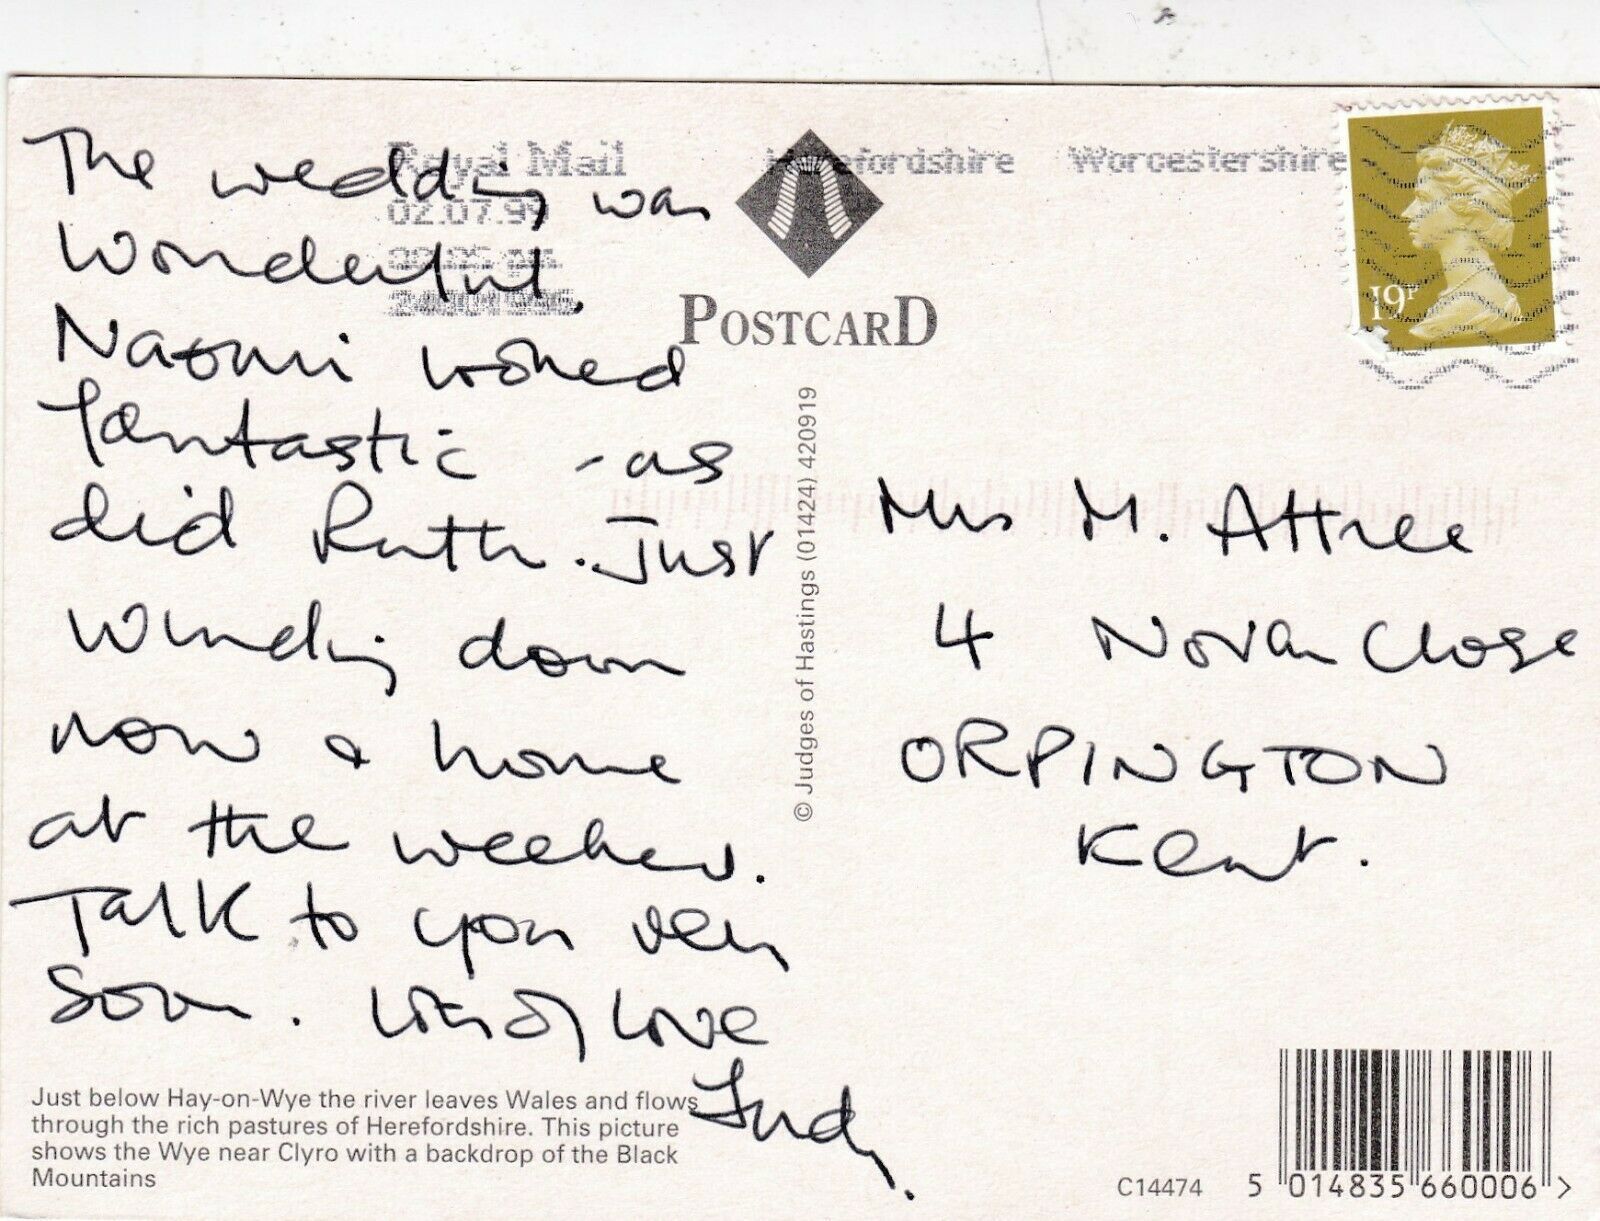 The wedding was
wonderful.
Naomi looked
fantastic - as
did Ruth. Just
winding down
now & home
at the weekend.
Talk to you very
soon. Lots of love
Judy.
Just below Hay-on-Wye the river leaves Wales and flows
through the rich pastures of Herefordshire. This picture
shows the Wye near Clyro with a backdrop of the Black
Mountains
Royal Mail
02.07.99
Herefordshire Worcestershire
POSTCARD
© Judges of Hastings (01424) 420919
19P
Mrs M. Attree
4 Novar Close
ORPINGTON
Kent.
C14474
5 014835 660006 >